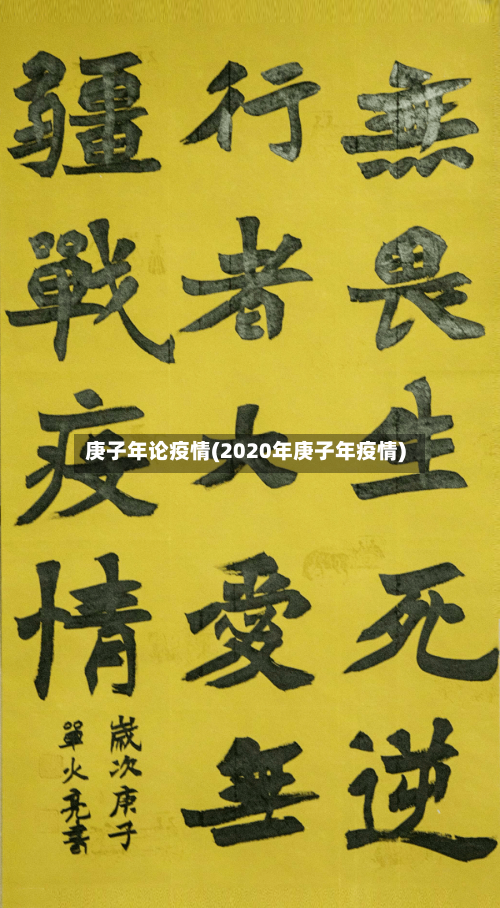 無畏生死逆
行者大愛無
疆戰疫情
歲次庚子
單火亮書
庚子年论疫情(2020年庚子年疫情)